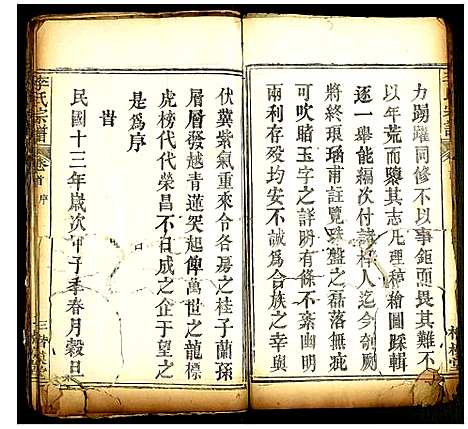 力踴躍同修不以事鉅而畏其難不
以年荒而隳其志凡理種繪圖踩輯
逐一舉能編次付諸梓人迄今剞劂
將終琅瑤甫註覽珠盤之磊落無疵
可吹睹玉字之詳勝有條不紊幽明
兩利存殁均安不誠爲合族之幸與
李氏宗譜
卷首 序
伏冀紫氣重來令各房之桂子蘭孫
層層發越青蓮突起俾萬世之龍標
虎榜代代榮昌不日成之企于望之
是爲序
旹
民國十三年歲次甲子季春月穀旦